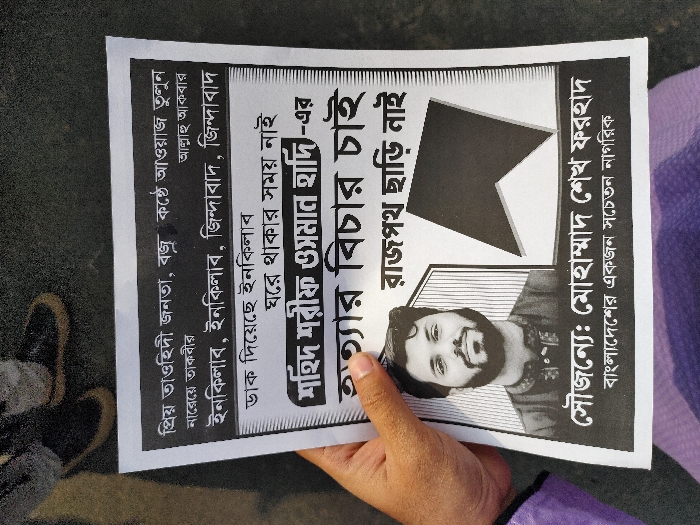 প্রিয় তাওহিদী জনতা, বজ্র কন্ঠে আওয়াজ তুলুন
নারেয়ে তাকবীর আল্লাহু আকবার
ইনকিলাব, ইনকিলাব, জিন্দাবাদ, জিন্দাবাদ
ডাক দিয়েছে ইনকিলাব
ঘরে থাকার সময় নাই
শহিদ শরীফ ওসমান হাদি -এর
হত্যার বিচার চাই
রাজপথ ছাড়ি নাই
সৌজন্যে: মোহাম্মাদ শেখ ফরহাদ
বাংলাদেশের একজন সচেতন নাগরিক